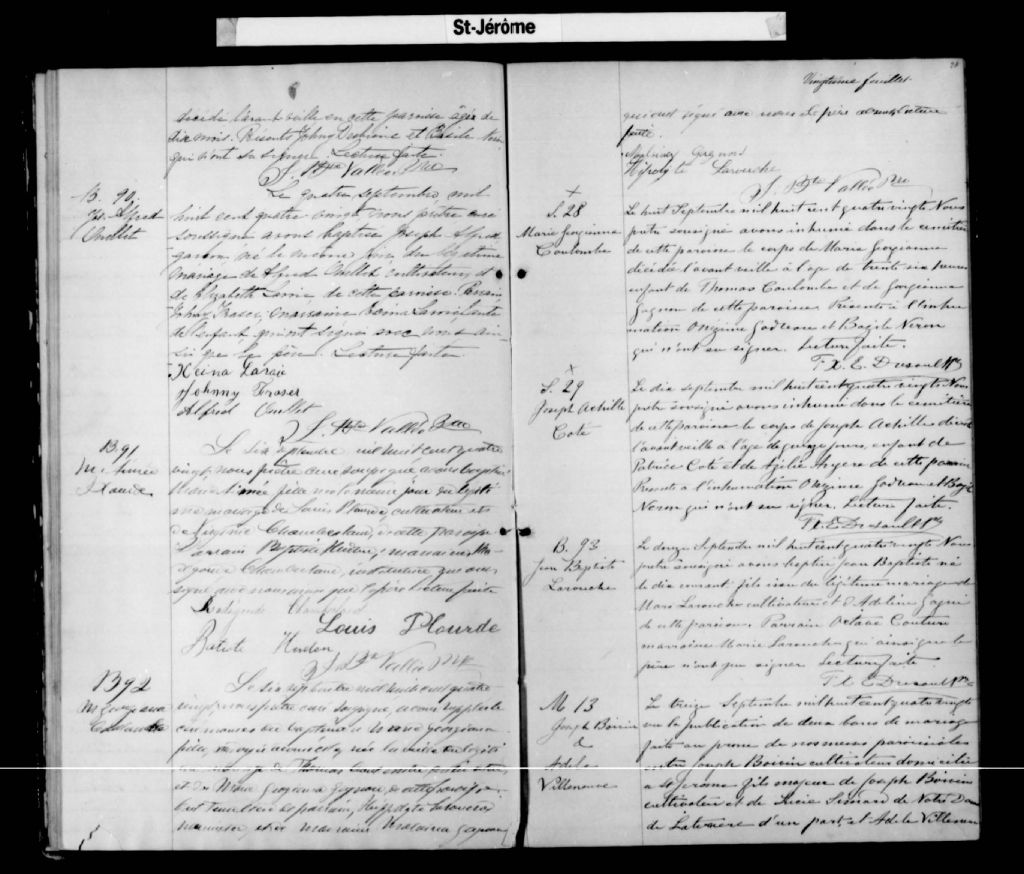 St-Jérôme
décédé l'avant veille en cette paroisse âgée de
dix mois. Présents Johny et Basile
qui n'ont su signer. Lecture faite.
J. Bte Vallée Ptre
B. 90.
Js. Alfred
Ouellet
Le quatre septembre mil
huit cent quatre vingt nous prêtre curé
soussigné avons baptisé Joseph Alfred
garçon né le même jour du légitime
mariage de Alfred Ouellet cultivateur et
de Elizabeth Larrie de cette paroisse. Parrain
Johny Fraser, marraine
de l'enfant qui ont signé avec nous ain
si que le père. Lecture faite.
Keina Laraie
Johnny Fraser
Alfred Ouellet
J. Bte Vallée Ptre
B 91
M. Aimée
Plourde
Le six septembre mil huit cent quatre
vingt nous prêtre curé soussigné avons baptisé
Marie Aimée née le même jour du légiti
me mariage de Louis Plourde, cultivateur et
de Chamberland, de cette paroisse
Parrain Baptiste Hudon, marraine
Chamberland, institutrice qui ont
signé avec nous ainsi que le père. Lecture faite
Louis Plourde
Batiste Hudon
J. Bte Vallée Ptre
B 92
M Georgiana
Coulombe
Le six septembre mil huit cent quatre
vingt nous prêtre curé soussigné, avons suppléé
cérémonies du baptême à Marie Georgiana
née la veille du légiti
me mariage de Thomas
et de Marie Georgiana Gagnon, de cette paroisse
le parrain, Hyppolyte Larouche
et la marraine Malvina Gagnon
20
Vingtième feuillet
qui ont signé avec nous le père Lecture
faite.
Malvina Gagnon
Hipolyte Larouche
J. Bte Vallée Ptre
S. 28
Marie Georgianna
Coulombe
Le huit Septembre mil huit cent quatre vingts Nous
prêtre soussigné avons inhumé dans le cimetière
de cette paroisse le corps de Marie Georgianna
décédée l'avant veille à l'âge de trente six heures
enfant de Thomas Coulombe et de Georgianna
Gagnon de cette paroisse. Présents à l'inhu
mation Onézime Godreau et Bazile Neron
qui n'ont su signer. Lecture faite.
F. X. E. Dresoul Ptre
S 29
Joseph Achille
Coté
Le dix septembre mil huit cent quatre vingts Nous
prêtre soussigné avons inhumé dans le cimetière
de cette paroisse le corps de Joseph Achille décédé
l'avant veille à l'âge de quinze jours, enfant de
Patrice Coté et de Azilie Angers de cette paroisse
Présents à l'inhumation Onézime Godreau et Bazile
Neron qui n'ont su signer. Lecture faite.
F. X. E. Dresoul Ptre
B. 93
Jean Baptiste
Larouche
Le douze Septembre mil huit cent quatre vingts Nous
prêtre soussigné avons baptisé Jean Baptiste né
le dix courant fils issu du légitime mariage de
Mars Larouche cultivateur et d'Adeline Gagné
de cette paroisse. Parrain Octave Couture
marraine Marie Larouche qui ainsi que le
père n'ont pu signer. Lecture faite
F. X. E Dresoul Ptre
M 13
Joseph Boivin
&
Adele
Villeneuve
Le treize Septembre mil huit cent quatre vingts
vu la publication de deux bans de mariage
faite au prone de nos messes paroissiales
entre Joseph Boivin cultivateur domicilié
à St Jérome fils majeur de Joseph Boivin
cultivateur et de Lucie Simard de Notre Dame
de Laterrière d'un part, et Adele Villeneuve